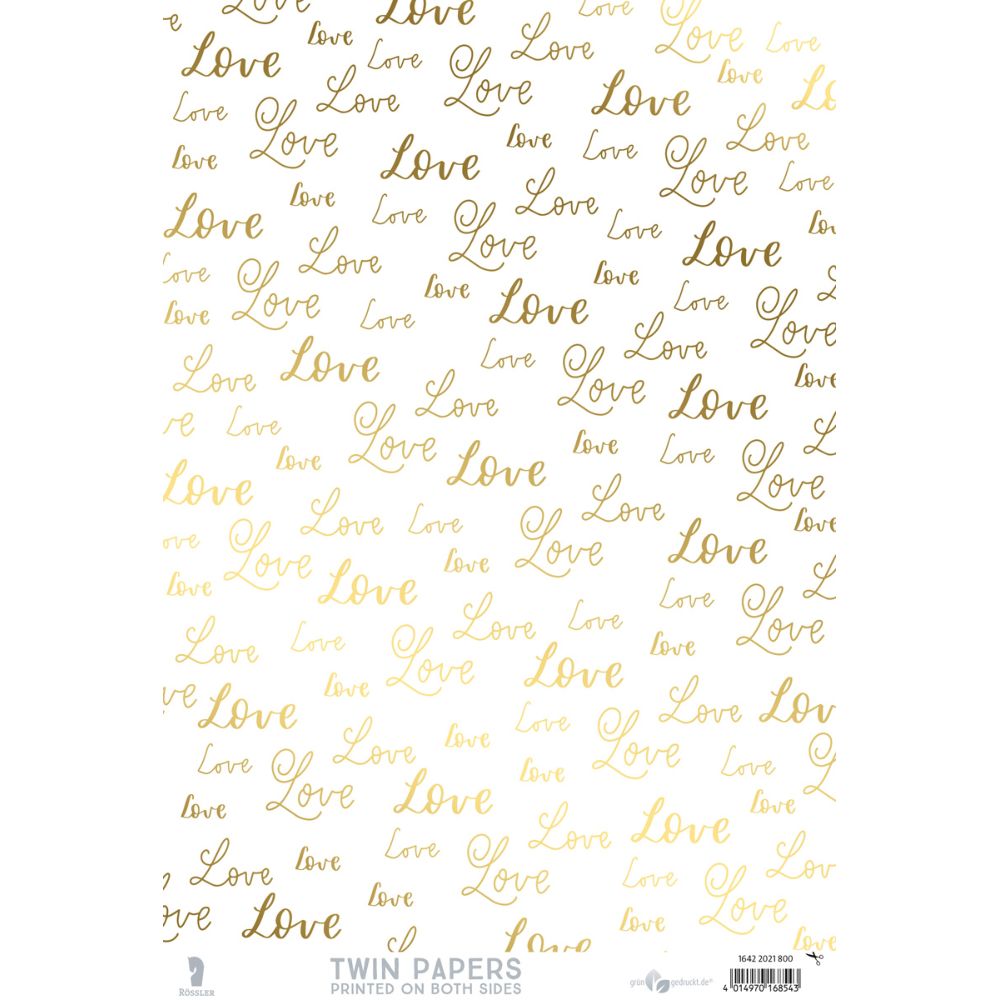 Love Love
Love Love Love Love Love
Love Love Love
Love Love Lo
Love Love Love Love
Love Love Love Love Love
Love Love Love
Love Love Love Lo
Love Love
ove Love Love Love
Love Love Love Love Love
Love Love
Love Love Love Love
Love Love
ve Love Love Love
Love Love Love
Love Love
Love Love Love Love
ove Love Love Love
Love Love Love Love
Love Love Love Love Love
Love Love Love
ve Love Love Love Lov
Love Love Love Love Love
Love Love Love
Love Love Love Love Love
Love Love Love Love Love Love
ove Love Love Love Love
Love
RÖSSLER
TWIN PAPERS
PRINTED ON BOTH SIDES
grün gedruckt.de®
1642 2021 800
4 014970 168543